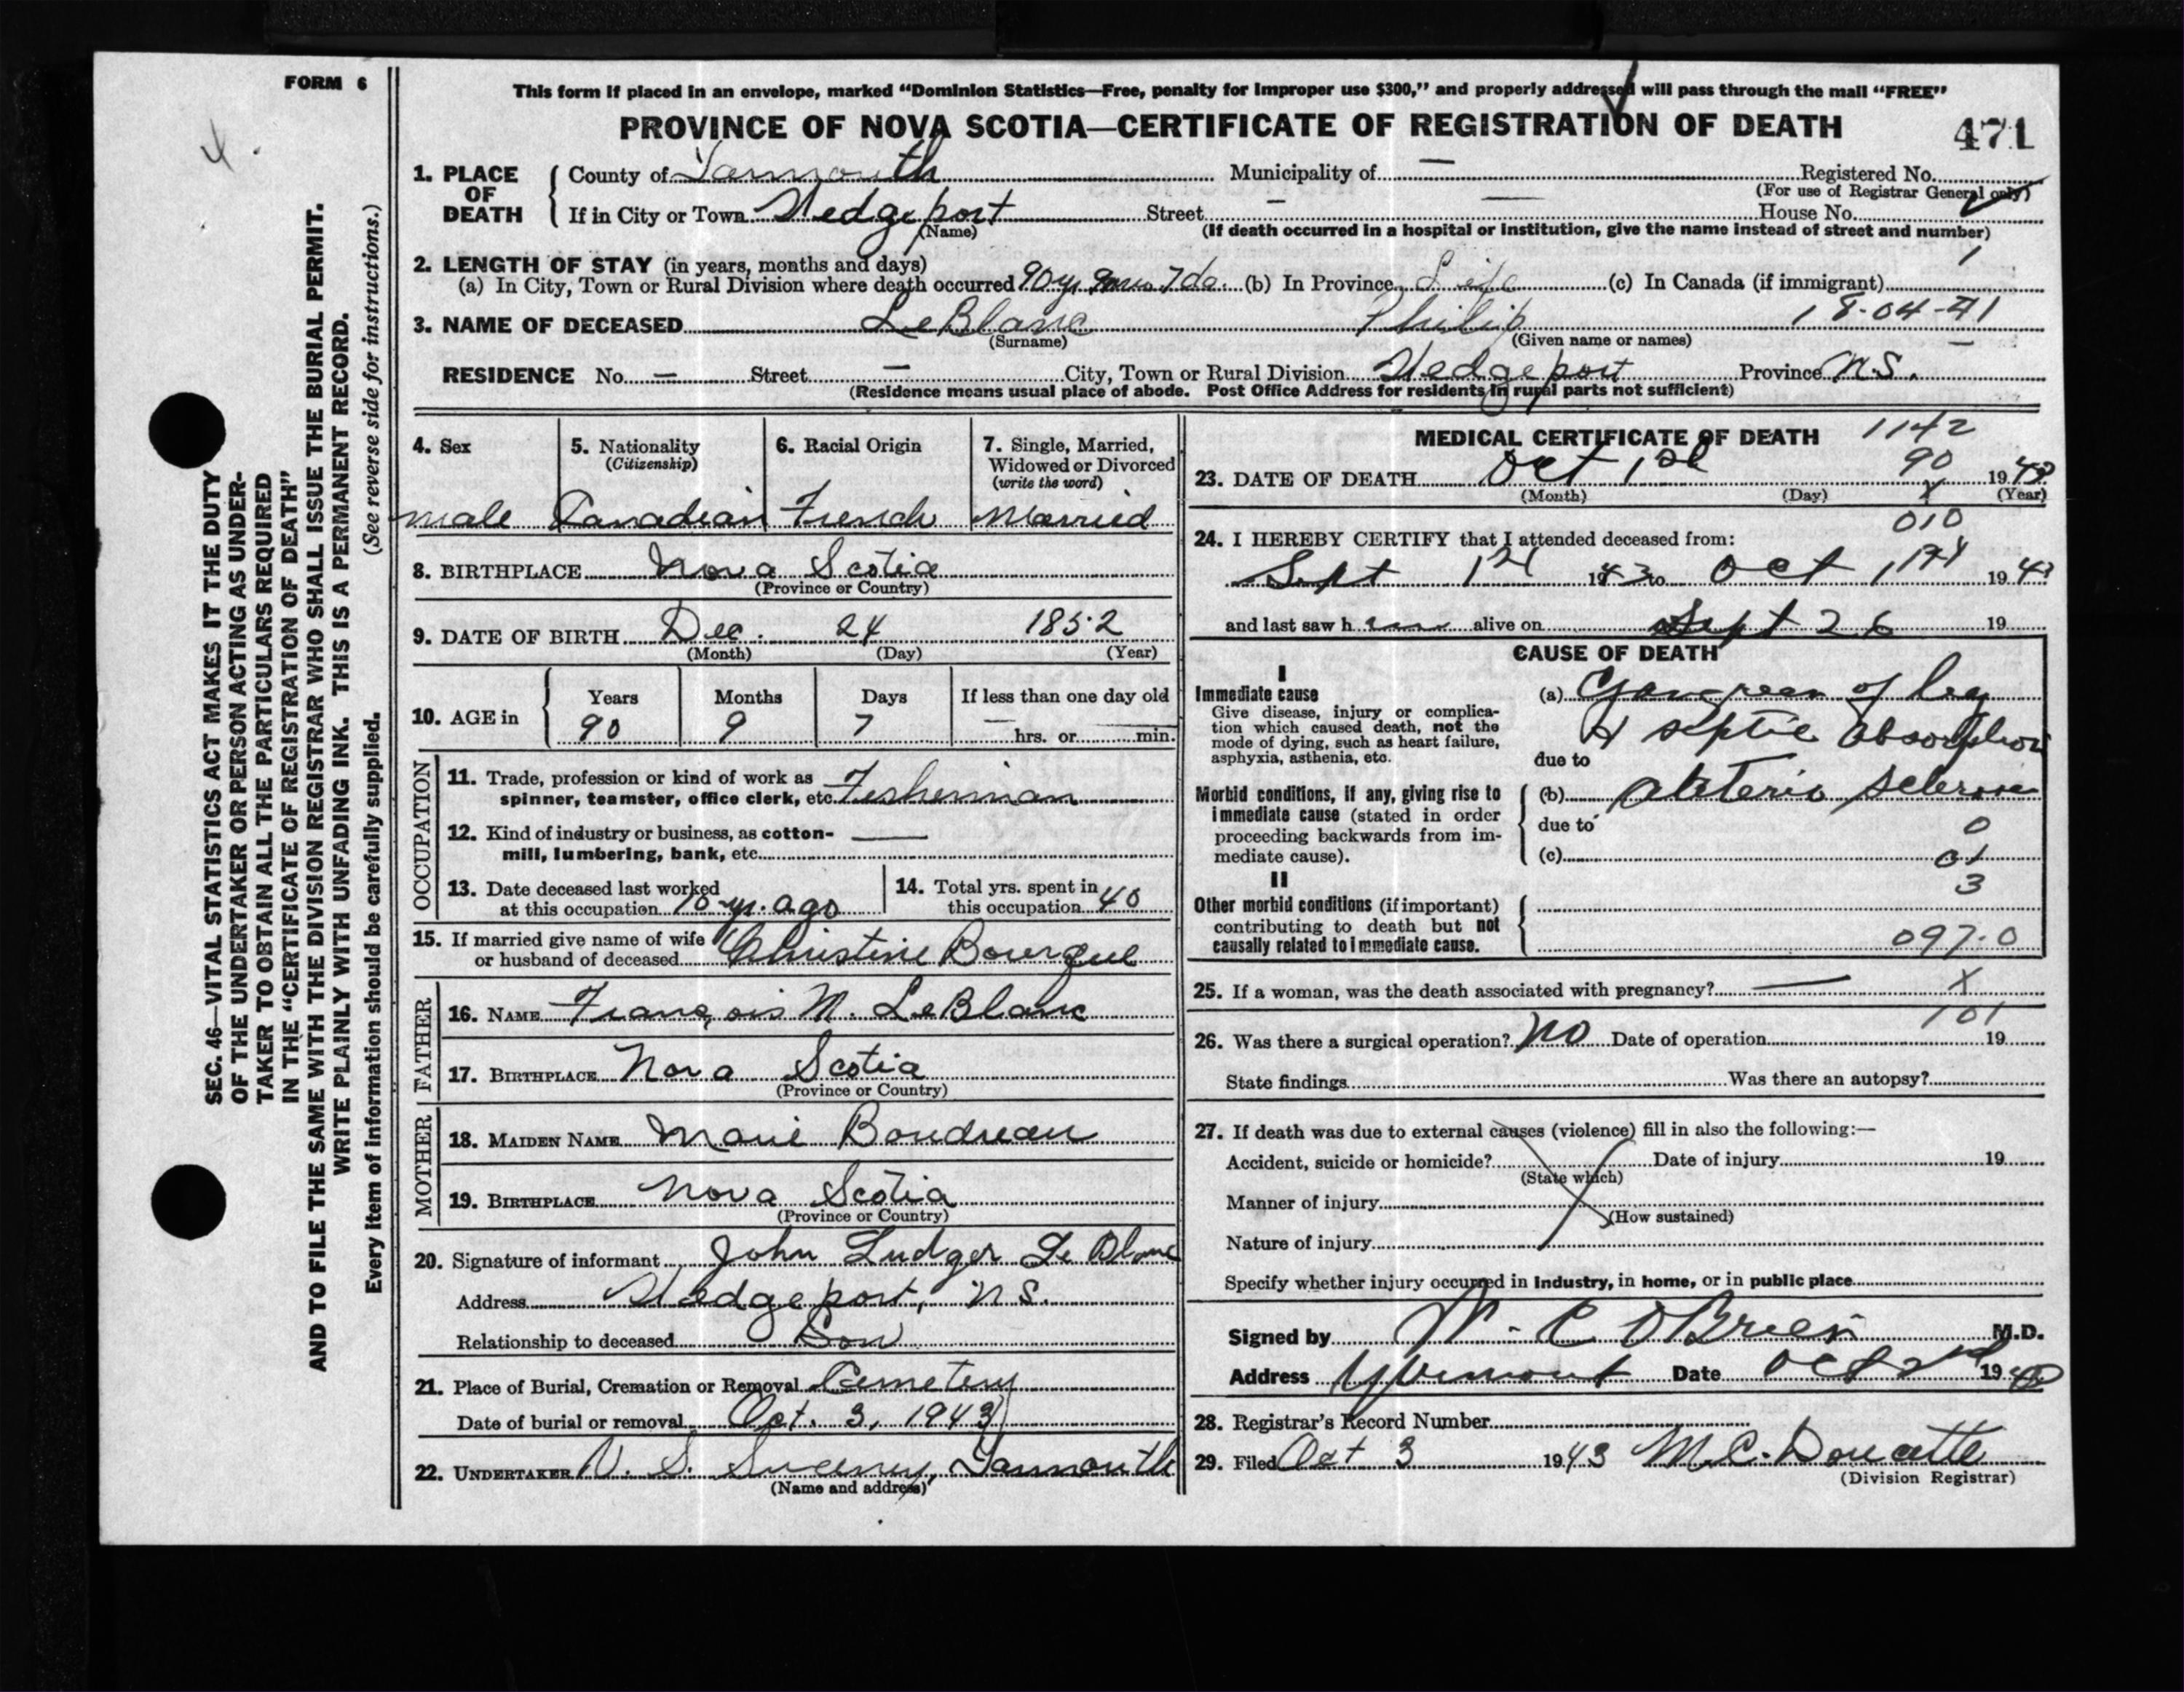 FORM 6
This form if placed in an envelope, marked “Dominion Statistics—Free, penalty for improper use $300,” and properly addressed will pass through the mail “FREE”
PROVINCE OF NOVA SCOTIA—CERTIFICATE OF REGISTRATION OF DEATH 471
SEC. 46—VITAL STATISTICS ACT MAKES IT THE DUTY
OF THE UNDERTAKER OR PERSON ACTING AS UNDER-
TAKER TO OBTAIN ALL THE PARTICULARS REQUIRED
IN THE “CERTIFICATE OF REGISTRATION OF DEATH”
AND TO FILE THE SAME WITH THE DIVISION REGISTRAR WHO SHALL ISSUE THE BURIAL PERMIT.
WRITE PLAINLY WITH UNFADING INK. THIS IS A PERMANENT RECORD.
Every item of information should be carefully supplied. (See reverse side for instructions.)
1. PLACE OF DEATH
County of Yarmouth Municipality of — Registered No.
(For use of Registrar General only)
If in City or Town Wedgeport Street — — House No.
(Name) (If death occurred in a hospital or institution, give the name instead of street and number)
2. LENGTH OF STAY (in years, months and days) 1
(a) In City, Town or Rural Division where death occurred 90 yr 9 mos 7 da. (b) In Province Life (c) In Canada (if immigrant)
3. NAME OF DECEASED LeBlanc Philip 18-04-41
(Surname) (Given name or names) —
RESIDENCE No. — Street — City, Town or Rural Division Wedgeport Province N.S.
(Residence means usual place of abode. Post Office Address for residents in rural parts not sufficient)
4. Sex 5. Nationality (Citizenship) 6. Racial Origin 7. Single, Married, Widowed or Divorced (write the word)
male Canadian French Married
8. BIRTHPLACE Nova Scotia
(Province or Country)
9. DATE OF BIRTH Dec. 24 1852
(Month) (Day) (Year)
10. AGE in Years Months Days If less than one day old
90 9 7 — hrs. or min.
OCCUPATION
11. Trade, profession or kind of work as
spinner, teamster, office clerk, etc. Fisherman
12. Kind of industry or business, as cotton- —
mill, lumbering, bank, etc.
13. Date deceased last worked
at this occupation 10 yr. ago
14. Total yrs. spent in
this occupation 40
15. If married give name of wife
or husband of deceased Christine Bourque
FATHER
16. NAME François M. LeBlanc
17. BIRTHPLACE Nova Scotia
(Province or Country)
MOTHER
18. MAIDEN NAME Marie Boudreau
19. BIRTHPLACE Nova Scotia
(Province or Country)
20. Signature of informant John Ludger Le Blanc
Address Wedgeport, N S.
Relationship to deceased Son
21. Place of Burial, Cremation or Removal Cemetery
Date of burial or removal Oct. 3, 1943
22. UNDERTAKER V. S. Sweeney, Yarmouth
(Name and address)
MEDICAL CERTIFICATE OF DEATH 1142
90
23. DATE OF DEATH Oct 1st 1943
(Month) (Day) (Year)
X
010
24. I HEREBY CERTIFY that I attended deceased from:
Sept 1st 1943 to Oct 1st 1943
and last saw h im alive on Sept 26 19
CAUSE OF DEATH
I
Immediate cause
Give disease, injury or complica-
tion which caused death, not the
mode of dying, such as heart failure,
asphyxia, asthenia, etc.
(a) Gangreen of leg
& septic absorption
due to
Morbid conditions, if any, giving rise to
immediate cause (stated in order
proceeding backwards from im-
mediate cause).
(b) Arterio Sclerosis
due to 0
(c) 01
II 3
Other morbid conditions (if important)
contributing to death but not
causally related to immediate cause. 097.0
25. If a woman, was the death associated with pregnancy? — X
101
26. Was there a surgical operation? No Date of operation 19
State findings Was there an autopsy?
27. If death was due to external causes (violence) fill in also the following:—
Accident, suicide or homicide? Date of injury 19
(State which)
Manner of injury
(How sustained)
Nature of injury
Specify whether injury occurred in industry, in home, or in public place
Signed by W. C O'Brien M.D.
Address Yarmouth Date Oct 2nd 1943
28. Registrar's Record Number
29. Filed Oct 3 1943 M.C. Doucette
(Division Registrar)